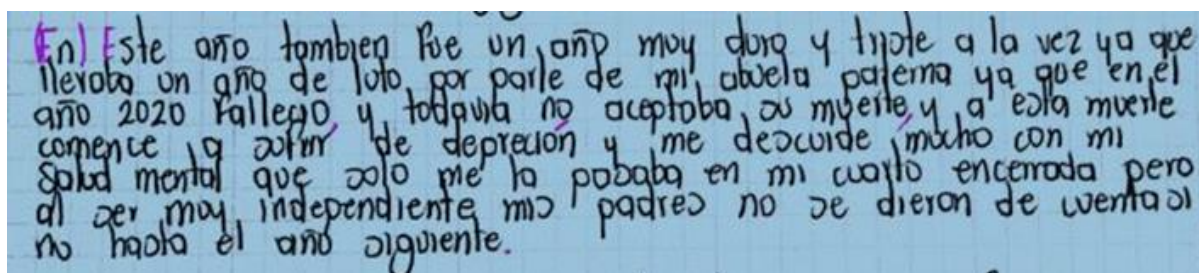 (En) Este año tambien fue un año muy duro y triste a la vez ya que
llevaba un año de luto por parte de mi abuela paterna ya que en el
año 2020 fallecio, y todavia no aceptaba su muerte y a esta muerte
comence a sufrir de depreción y me descuide mucho con mi
Salud mental que solo me la pasaba en mi cuarto encerrada pero
al ser muy independiente mis padres no se dieron de cuenta si
no hasta el año siguiente.